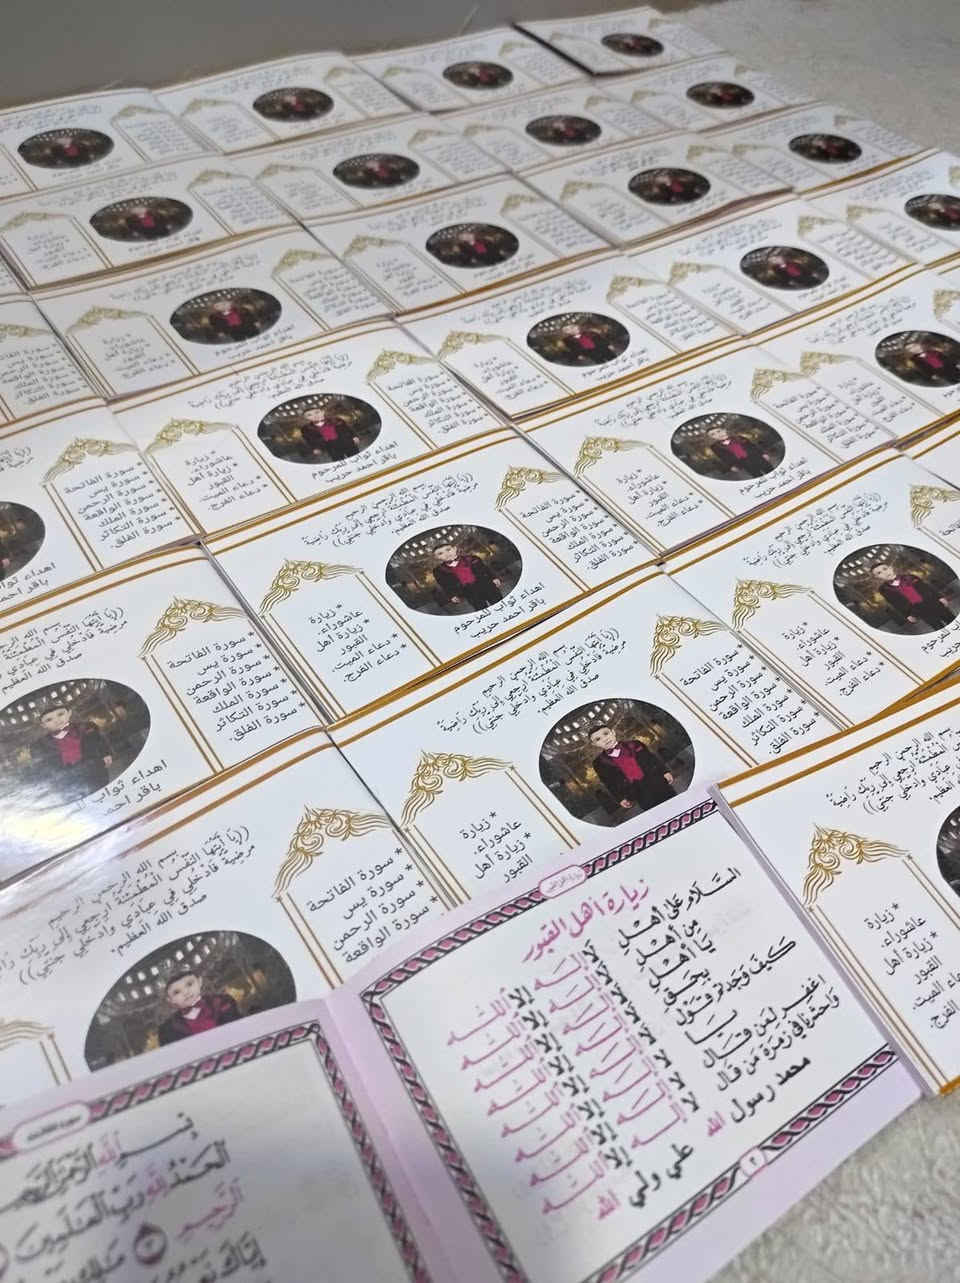 بسم الله الرحمن الرحيم
((يا أيتها النفس المطمئنة ارجعي إلى ربك راضية
مرضية فادخلي في عبادي وادخلي جنتي))
صدق الله العظيم.
* سورة الفاتحة
* سورة يس
* سورة الرحمن
* سورة الواقعة
* سورة الملك
* سورة التكاثر
* سورة الفلق.
* زيارة
عاشوراء.
* زيارة أهل
القبور
* دعاء الميت.
* دعاء الفرج.
اهداء ثواب للمرحوم
باقر احمد حريب
زيارة أهل القبور
السلام على أهل لا إله إلا الله
من أهل لا إله إلا الله
يا أهل لا إله إلا الله
بحق لا إله إلا الله
كيف وجدتم قول لا إله إلا الله
يا لا إله إلا الله
اغفر لمن قال لا إله إلا الله
واحشرنا في زمرة من قال لا إله إلا الله
محمد رسول الله علي ولي الله
٢
بسم الله الرحمن الرحيم
الحمد لله رب العالمين
الرحيم